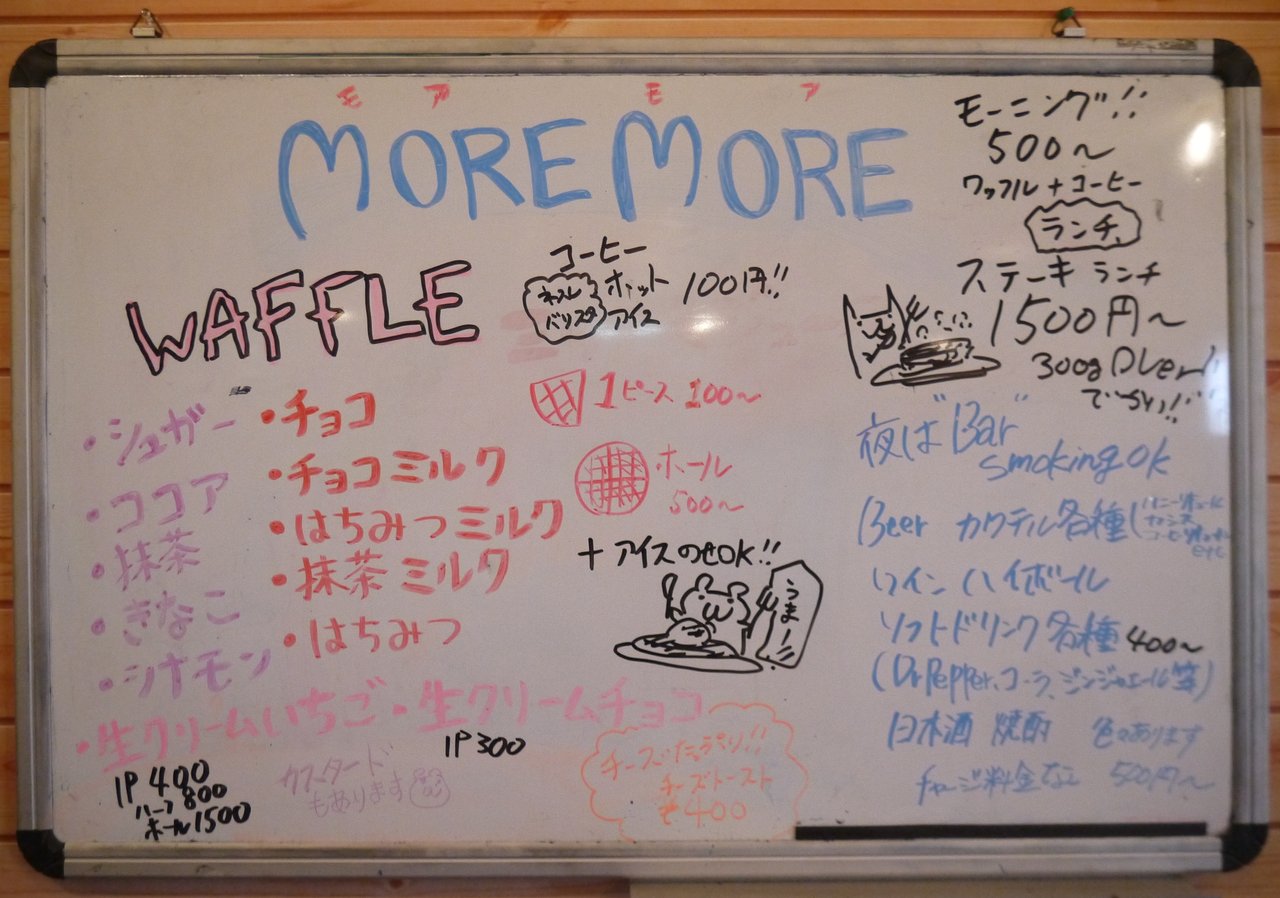 モア モア
MORE MORE
WAFFLE
・シュガー
・ココア
・抹茶
・きなこ
・シナモン
・チョコ
・チョコミルク
・はちみつミルク
・抹茶ミルク
・はちみつ
・生クリームいちご・生クリームチョコ
1P 400
ハーフ 800
ホール 1500
1P 300
カスタード
もあります
コーヒー
ネスレ
バリスタ
ホット
アイス
100円!!
1ピース 100〜
ホール
500〜
+アイスのせOK!!
うまー!
チーズたっぷり!!
チーズトースト
400
モーニング!!
500〜
ワッフル+コーヒー
ランチ
ステーキ ランチ
1500円〜
300g Over!
でかい!!
夜は"Bar"
smoking ok
Beer カクテル各種
カシス
etc
ワイン ハイボール
ソフトドリンク各種 400〜
(Dr Pepper、コーラ、ジンジャエール等)
日本酒 焼酎 色々あります
チャージ料金なし 500円〜